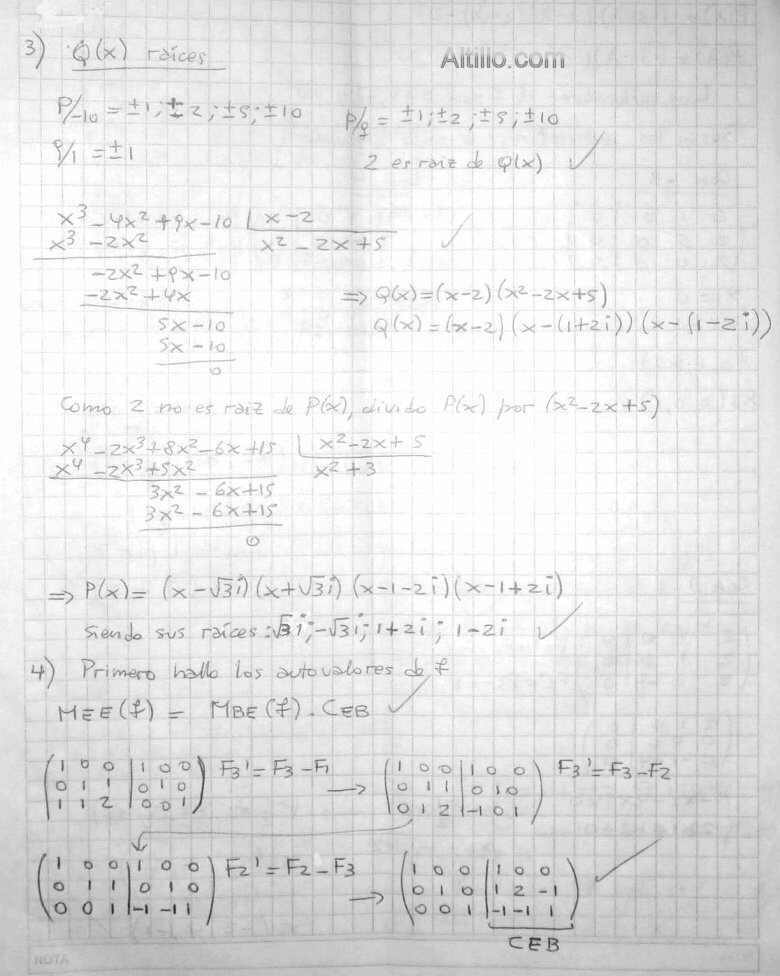 Altillo.com
3) Q(x) raíces
P/-10 = ±1; ±2; ±5; ±10
q/1 = ±1
P/q = ±1; ±2; ±5; ±10
2 es raíz de Q(x) ✓
x³ - 4x² + 9x - 10 | x - 2
x³ - 2x² x² - 2x + 5 ✓
-2x² + 9x - 10
-2x² + 4x
5x - 10
5x - 10
0
⇒ Q(x) = (x-2) (x² - 2x + 5)
Q(x) = (x-2) (x - (1+2i)) (x - (1-2i))
Como 2 no es raíz de P(x), divido P(x) por (x² - 2x + 5)
x⁴ - 2x³ + 8x² - 6x + 15 | x² - 2x + 5
x⁴ - 2x³ + 5x² x² + 3
3x² - 6x + 15
3x² - 6x + 15
0
⇒ P(x) = (x - √3i) (x + √3i) (x - 1 - 2i) (x - 1 + 2i)
siendo sus raíces: √3i; -√3i; 1+2i; 1-2i ✓
4) Primero hallo los autovalores de f
MEE(f) = MBE(f) . CEB ✓
1 0 0 | 1 0 0
0 1 1 | 0 1 0
1 1 2 | 0 0 1
F3' = F3 - F1 →
1 0 0 | 1 0 0
0 1 1 | 0 1 0
0 1 2 | -1 0 1
F3' = F3 - F2
1 0 0 | 1 0 0
0 1 1 | 0 1 0
0 0 1 | -1 -1 1
F2' = F2 - F3 →
1 0 0 | 1 0 0
0 1 0 | 1 2 -1
0 0 1 | -1 -1 1
✓
CEB
NOTA